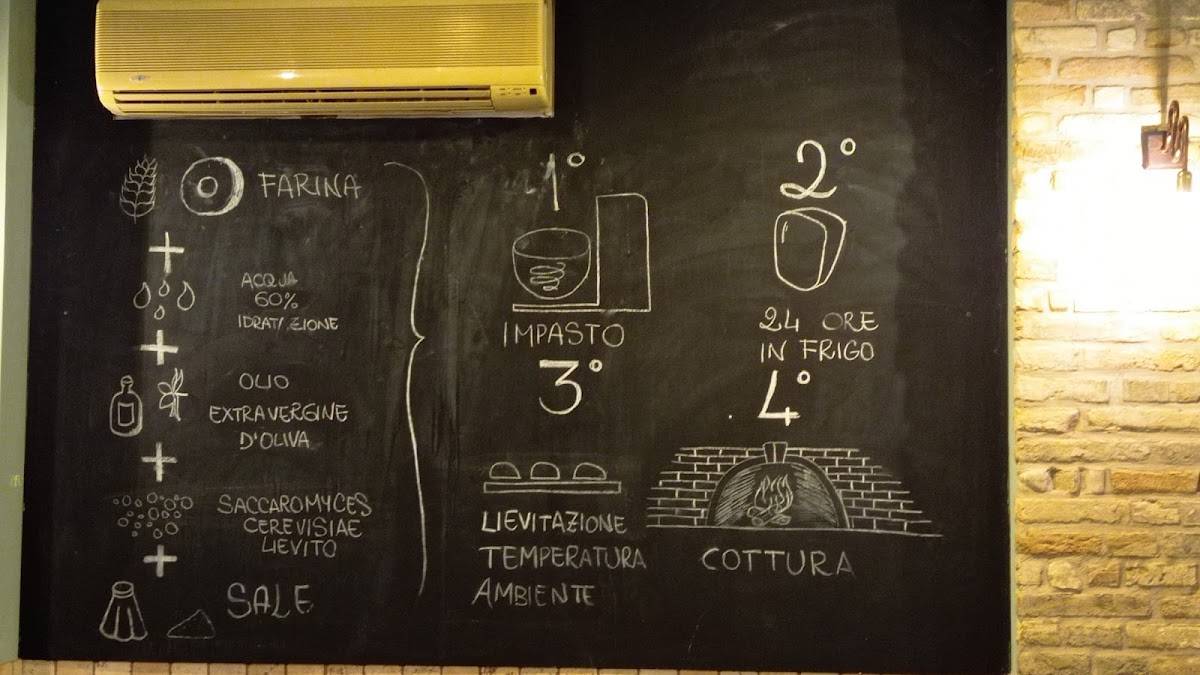 FARINA
+
ACQUA
60%
IDRATAZIONE
+
OLIO
EXTRAVERGINE
D'OLIVA
+
SACCAROMYCES
CEREVISIAE
LIEVITO
+
SALE
1°
IMPASTO
2°
24 ORE
IN FRIGO
3°
LIEVITAZIONE
TEMPERATURA
AMBIENTE
4°
COTTURA